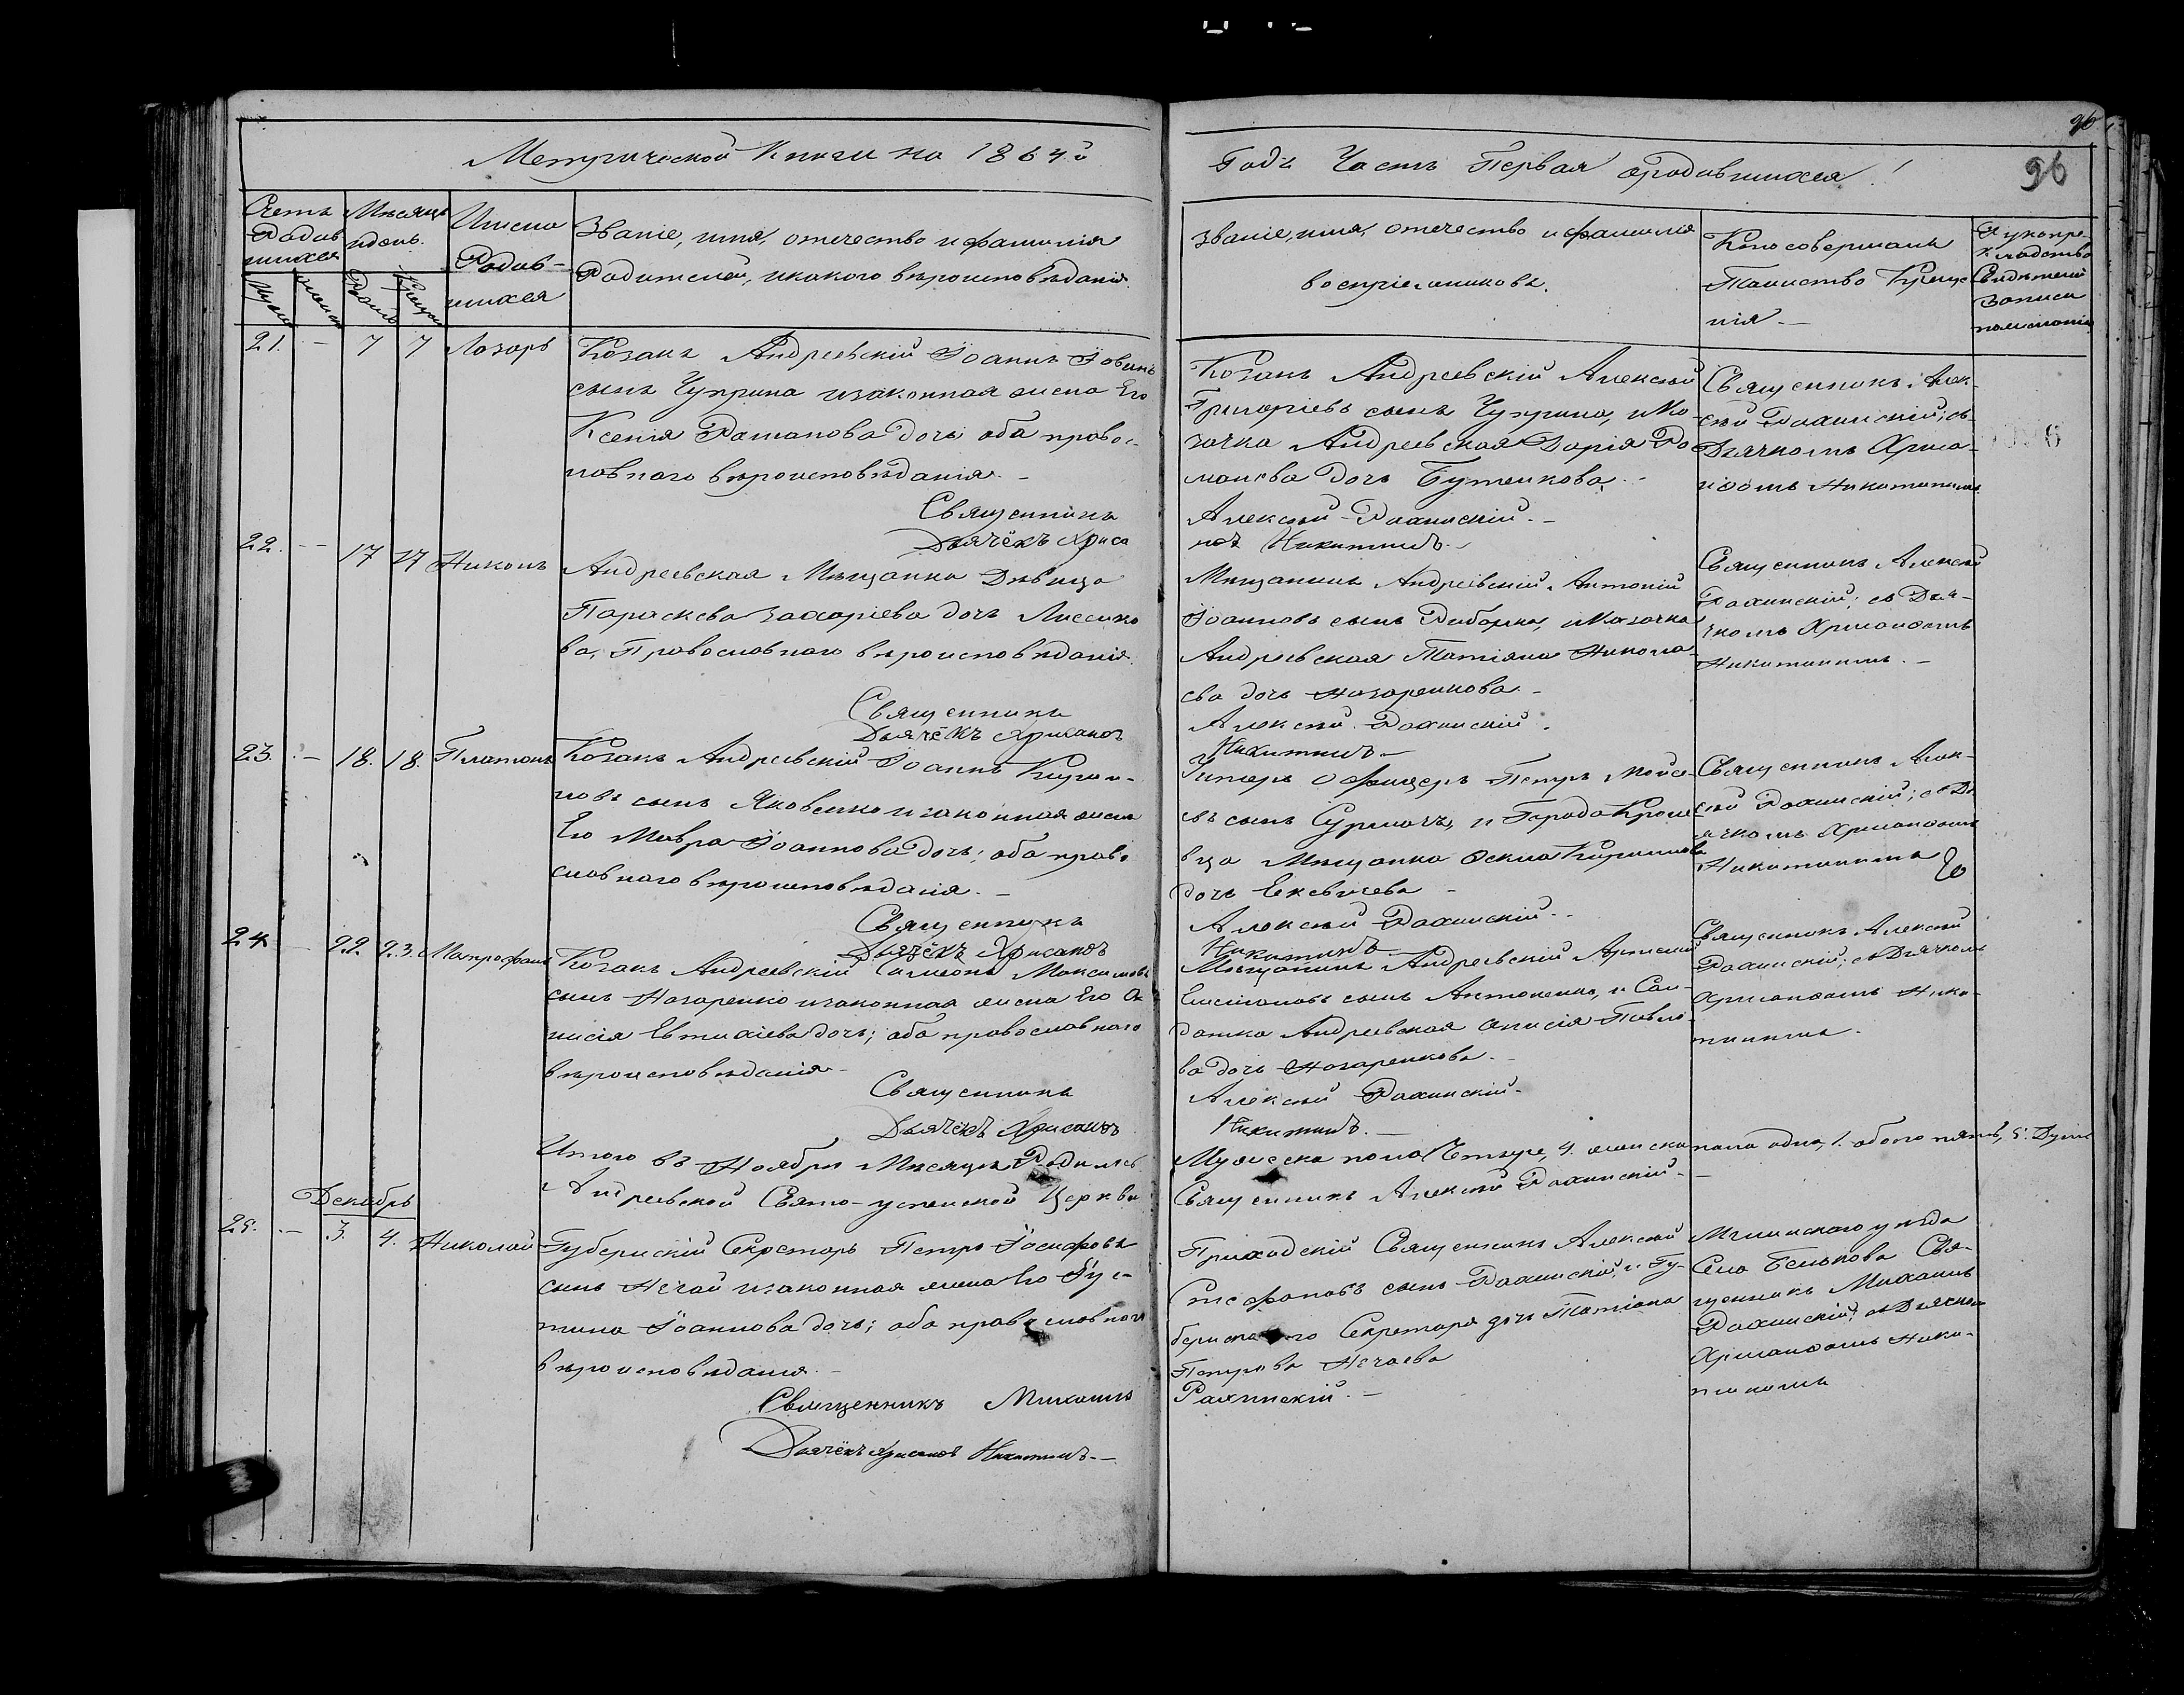 96
Метрической Книги на 1864й
Годъ Часть Первая о родившихся!
96
Счетъ родившихся
Мѣсяцъ и день.
Имена Родив-
шихся
Званіе, имя, отечество и фамилія
Родителей, и какого вѣроисповѣданія.
Званіе, имя, отечество и фамилія
воспріемниковъ.
Кто совершалъ
Таинство Креще
нія.
Рукопри-
кладство
Свидѣтелей
записи
21. — 7 7 Лазарь
Козакъ Андреевскій Іоаннъ Іовинъ
сынъ Чуприна и законная жена Его
Ксенія Романова дочь; оба правос-
лавнаго вѣроисповѣданія. —
Священникъ
Дьячёкъ Хриса
Козакъ Андреевскій Алексѣй
Григоріевъ сынъ Чуприна, и Ко-
зачка Андреевская Дарія Ро
манова дочь Бутенкова. —
Алексѣй Рахинскій. —
нѳъ Никитинъ. —
Священникъ Алек-
сѣй Рахинскій; съ
Дьячкомъ Хриса-
нѳомъ Никитинымъ.
22. — 17 27 Никонъ
Андреевская Мѣщанка Дѣвица
Параскева Захаріева дочь Лиссико
ва, Православнаго вѣроисповѣданія.
Священникъ
Дьячёкъ Хрисанѳъ
Мѣщанинъ Андреевскій Антоній
Іоанновъ сынъ Рибалка, и Козачка
Андреевская Татіяна Никола-
ева дочь Назаренкова. —
Алексѣй Рахинскій.
Никитинъ —
Священникъ Алексѣй
Рахинскій; съ Дья-
чкомъ Хрисанѳомъ
Никитинымъ. —
23. — 18. 18. Платонъ
Козакъ Андреевскій Іоаннъ Кирил-
ловъ сынъ Яковенко и законная жена
Его Мавра Іоаннова дочь; оба право
славнаго вѣроисповѣданія. —
Священникъ
Дьячёкъ Хрисанѳъ
Унтеръ Офицеръ Петръ Моисе-
евъ сынъ Сурмачъ, и Города Кроле
вца Мѣщанка Ѳекла Кириллова
дочь
Алексѣй Рахинскій. —
Никитинъ
Священникъ Алек-
сѣй Рахинскій; съ Дь
ячкомъ Хрисанѳомъ
Никитинымъ
24 — 22. 23. Митрофанъ
Козакъ Андреевскій Симеонъ Максимовъ
сынъ Назаренко и законная жена Его О
нисія Евтихіева дочь; оба православнаго
вѣроисповѣданія —
Священникъ
Дьячёкъ Хрисанѳъ
Мѣщанинъ Андреевскій
сынъ Антоненко, и Сол-
датка Андреевская Онисія Павло-
ва дочь Назаренкова. —
Алексѣй Рахинскій —
Никитинъ. —
Священникъ Алексѣй
Рахинскій; съ Дьячкомъ
Хрисанѳомъ Ники-
тинымъ.
Итого въ Ноябрѣ Мѣсяцѣ Родилось
Мужеска пола Четыре, 4. женска пола одна, 1. обоего пять, 5. Душъ
Андреевской Свято-успенской Церкви
Священникъ Алексѣй Рахинскій. —
Декабрь
25. — 3. 4. Николай
Губернскій Секретарь Петръ Іосифовъ
сынъ Нечай и законная жена Его Іус-
тина Іоаннова дочь; оба православнаго
вѣроисповѣданія. —
Священникъ Михаилъ
Дьячёкъ Хрисанѳъ Никитинъ. —
Приходскій Священникъ Алексѣй
Стефановъ сынъ Рахинскій; и Гу-
бернскаго Секретаря дочь Татіана
Петрова Нечаева
Рахинскій. —
Мглинскаго уѣзда
Села Свя-
щенникъ Михаилъ
Рахинскій; съ Дьячком
Хрисанѳомъ Ники-
тиномъ